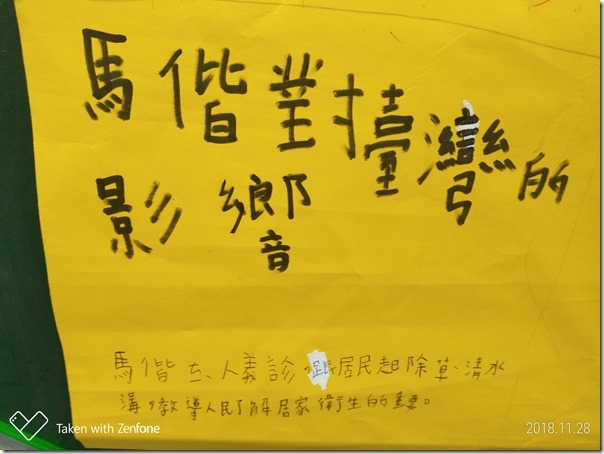 馬偕對臺灣的
影響
馬偕 人義診,跟居民起除草、清水
溝,教導人民了解居家衛生的重要。
Taken with Zenfone 2018.11.28